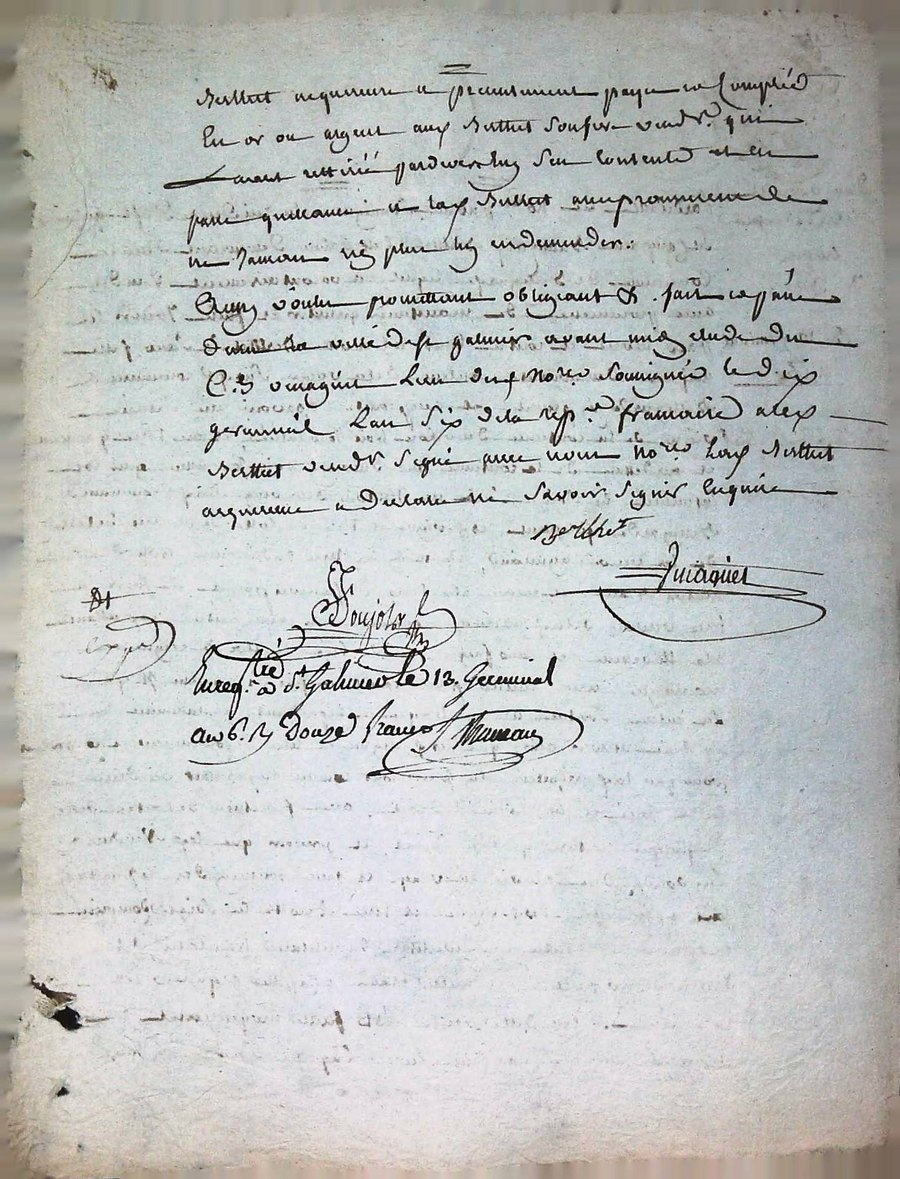 Berthet acquereur a presentement payé et Compté
En or ou argent aux Berthet son frere vendr. qui
L'ayant rettiré pardevers luy s'en contente et en
passe quittance a lad. Berthet avec promesse de
ne Jamais rien plus luy en demander.
Ainsy voulu promettant obligeant &. fait et passé
dans la ville de St galmier avant midy etude du
C.en vinaguet L'un des nores Soussignés le dix
germinal L'an Six de la rep.e francaise alex
Berthet vendr. Signé avec nous nores Lad. Berthet
acquereur a Declaré ne Savoir Signer Enquise
Berthet
Pujolas
Enregtré a St Galmier le 13. Germinal
an 6. R douze francs